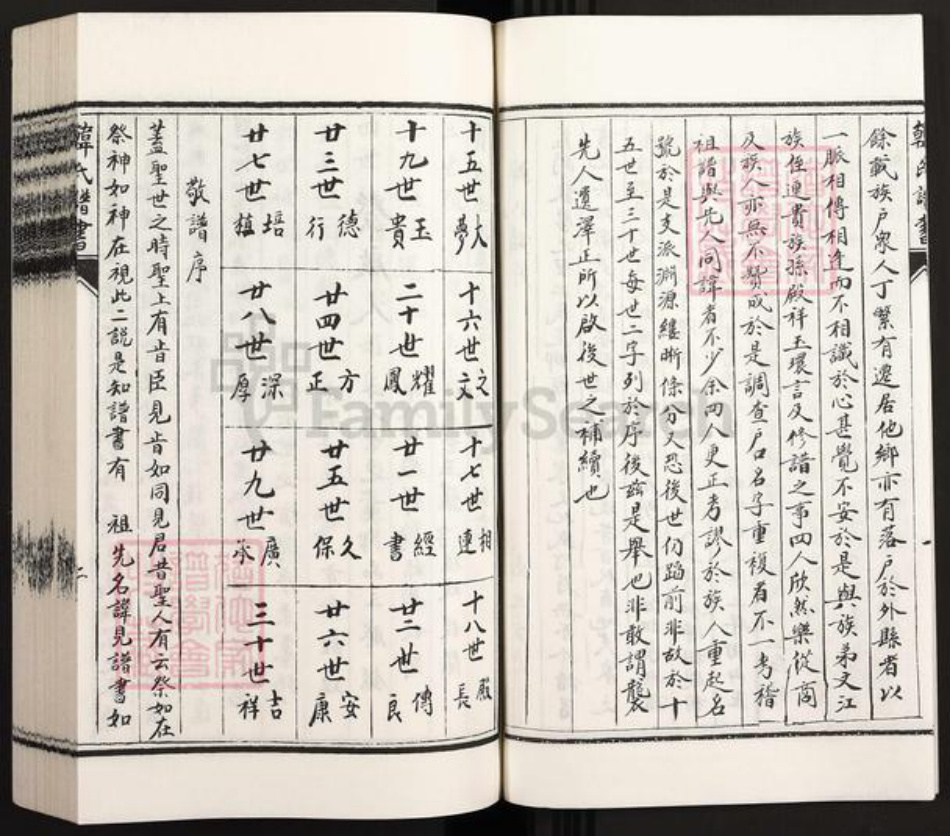 韓氏譜書
一
餘載族户衆人丁繁有遷居他鄉亦有落户於外縣者以
一脈相傳相逢而不相識於心甚覺不安於是與族弟文江
族侄連貴族孫殿祥玉環言及修譜之事四人欣然樂從商
及族人亦無不贊成於是調查户口名字重複者不一考稽
祖譜與先人同諱者不少余四人更正考謬於族人重起名
號於是支派淵源縷晰條分又恐後世仍蹈前非故於十
五世至三十世每世二字列於序後茲是舉也非敢謂襲
先人遺澤正所以啟後世之補續也
十五世 大夢
十六世 之文
十七世 相連
十八世 殿長
十九世 玉貴
二十世 耀鳳
廿一世 經書
廿二世 傳良
廿三世 德行
廿四世 方正
廿五世 久保
廿六世 安康
廿七世 培植
廿八世 深厚
廿九世 廣承
三十世 吉祥
敬譜序
蓋聖世之時聖上有旨臣見旨如同見君昔聖人有云祭如在
祭神如神在視此二説是知譜書有 祖先名諱見譜書如
韓氏譜書
二
FamilySearch